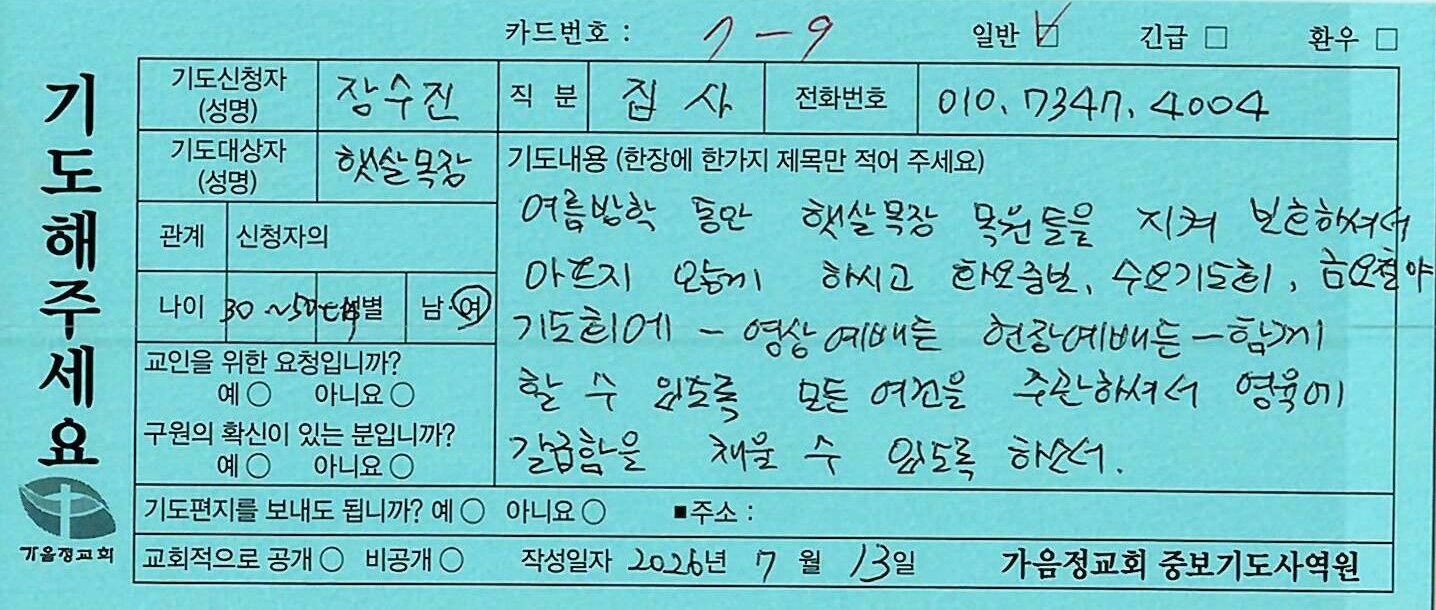 카드번호 : 7-9 일반 ☑ 긴급 □ 환우 □
기도해주세요
기도신청자 (성명) 장수진 직 분 집 사 전화번호 010. 7347. 4004
기도대상자 (성명) 햇살목장
관계 신청자의
나이 30 ~50대 성별 남·여
교인을 위한 요청입니까?
예 ○ 아니요 ○
구원의 확신이 있는 분입니까?
예 ○ 아니요 ○
기도내용 (한장에 한가지 제목만 적어 주세요)
여름방학 동안 햇살목장 목원들을 지켜 보호하셔서
아프지 않게 하시고 화요중보, 수요기도회, 금요철야
기도회에 - 영상예배든 현장예배든 - 함께
할 수 있도록 모든 여건을 주관하셔서 영육에
갈급함을 채울 수 있도록 하소서.
기도편지를 보내도 됩니까? 예 ○ 아니요 ○ ■주소 :
교회적으로 공개 ○ 비공개 ○ 작성일자 2026년 7 월 13일 가음정교회 중보기도사역원
가음정교회